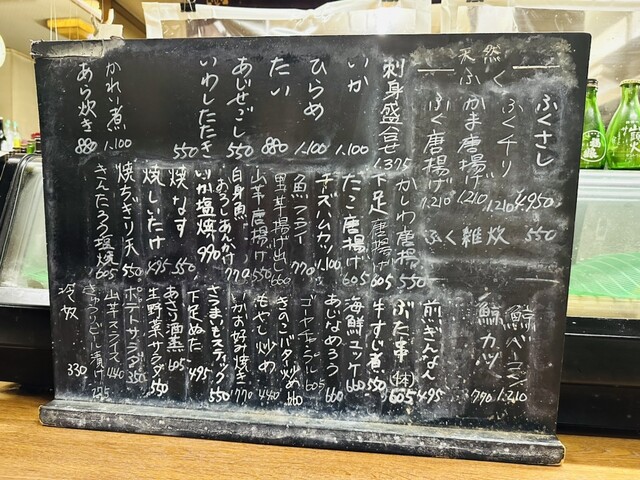 天然ふく
ふくさし
ふくチリ ¥4,950
1,210
かま唐揚げ 1,210
ふぐ唐揚げ 1,210
ふく雑炊 550
鯨ベーコン 1,210
鯨カツ 770
刺身盛合せ 1,375
いか 1,100
ひらめ 1,100
たい 880
あじせごし 550
いわしたたき 550
かれい煮 1,100
あら炊き 880
かしわ唐揚 550
下足唐揚げ 605
たこ唐揚 605
チーズハムカツ 1,100
魚フライ 770
里芋揚げ出し 660
山芋唐揚げ 550
白身魚おろしあんかけ 770
いか塩焼 990
焼なす 550
焼しいたけ 495
焼ちぎり天 550
きんたろう塩焼 605
煎ぎんなん 495
ぶた串(1本) 605
牛すじ煮 550
海鮮ユッケ 660
あじなめろう 660
ゴーヤチャンプル 605
きのこバタ炒め 660
もやし炒め 440
いかお好み焼き 770
さつまいもスティック 550
下足ぬた 495
あさり酒蒸 605
生野菜サラダ 550
ポテトサラダ 350
山芋スライス 440
きゅうりビール漬け 275
冷奴 330